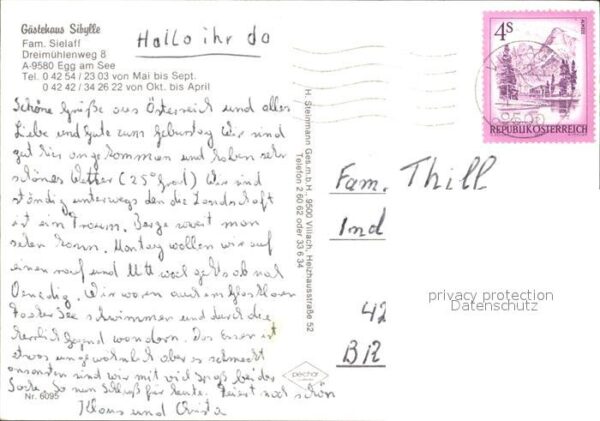 Gästehaus Sibylle
Fam. Sielaff
Dreimühlenweg 8
A-9580 Egg am See
Tel. 0 42 54 / 23 03 von Mai bis Sept.
0 42 42 / 34 26 22 von Okt. bis April
Hallo ihr da
Schöne Grüße aus Österreich und alles
Liebe und Gute zum Geburtstag Wir sind
gut hier angekommen und haben sehr
schönes Wetter (25° Grad) Wir sind
ständig unterwegs den die Landschaft
ist ein Traum. Berge soweit man
sehen kann. Montag wollen wir auf
einen rauf und gehts ab nach
Venedig. Wir waren auch im
Faaker See schwimmen und durch die
herrlich Gegend wandern. Das Essen ist
etwas ungewöhnlich aber es schmeckt
ansonsten sind wir mit viel Spaß bei der
Sache. So nun Schluß für heute. Feiert noch schön
Klaus und Christa
Nr. 6095
H. Steinmann Ges.m.b.H., 9500 Villach, Heizhausstraße 52
Telefon 2 60 62 oder 33 6 34
4S
REPUBLIK ÖSTERREICH
Fam. Thill
Ind
42
BR
privacy protection
Datenschutz